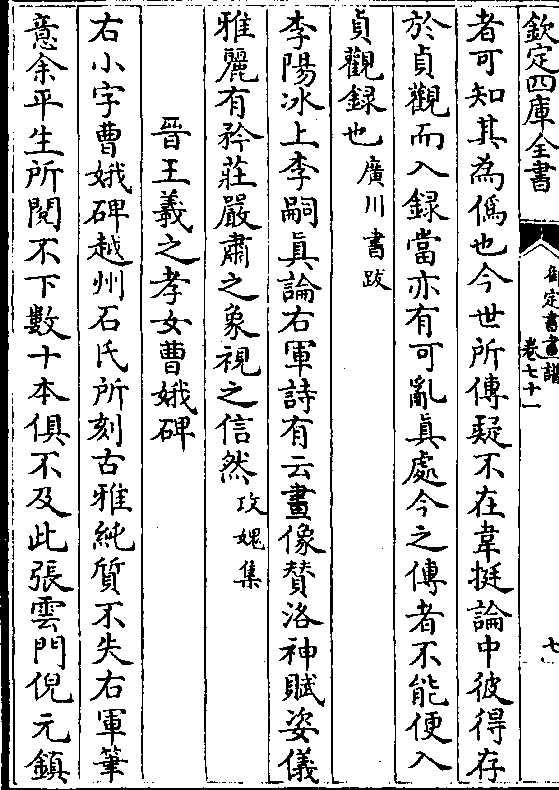 欽定四庫全書
御定書畫譜
卷七十一
七
者可知其為僞也今世所傳疑不在韋挺論中彼得存
於貞觀而入録當亦有可亂真處今之傳者不能便入
貞觀録也廣川書跋
李陽冰上李嗣真論右軍詩有云畫像賛洛神賦姿儀
雅麗有矜莊嚴肅之象視之信然攻媿集
晉王羲之孝女曹娥碑
右小字曹娥碑越州石氏所刻古雅純質不失右軍筆
意余平生所閱不下數十本俱不及此張雲門倪元鎮